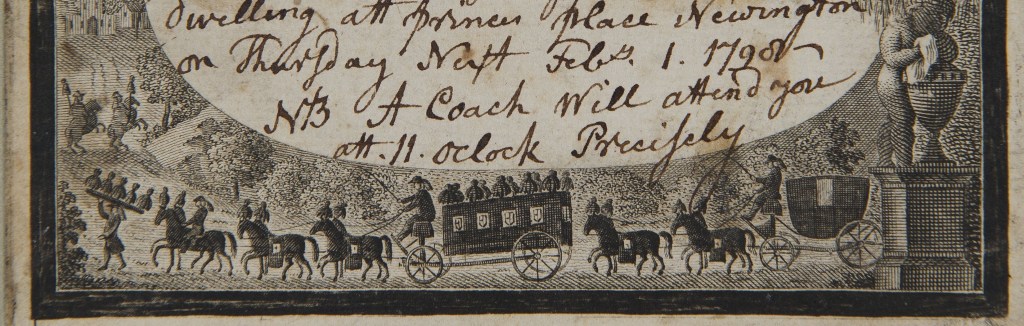 dwelling att princes place Newington
on Thursday Next Febr. 1. 1798
NB A Coach Will attend you
att. 11. oclock Precisely